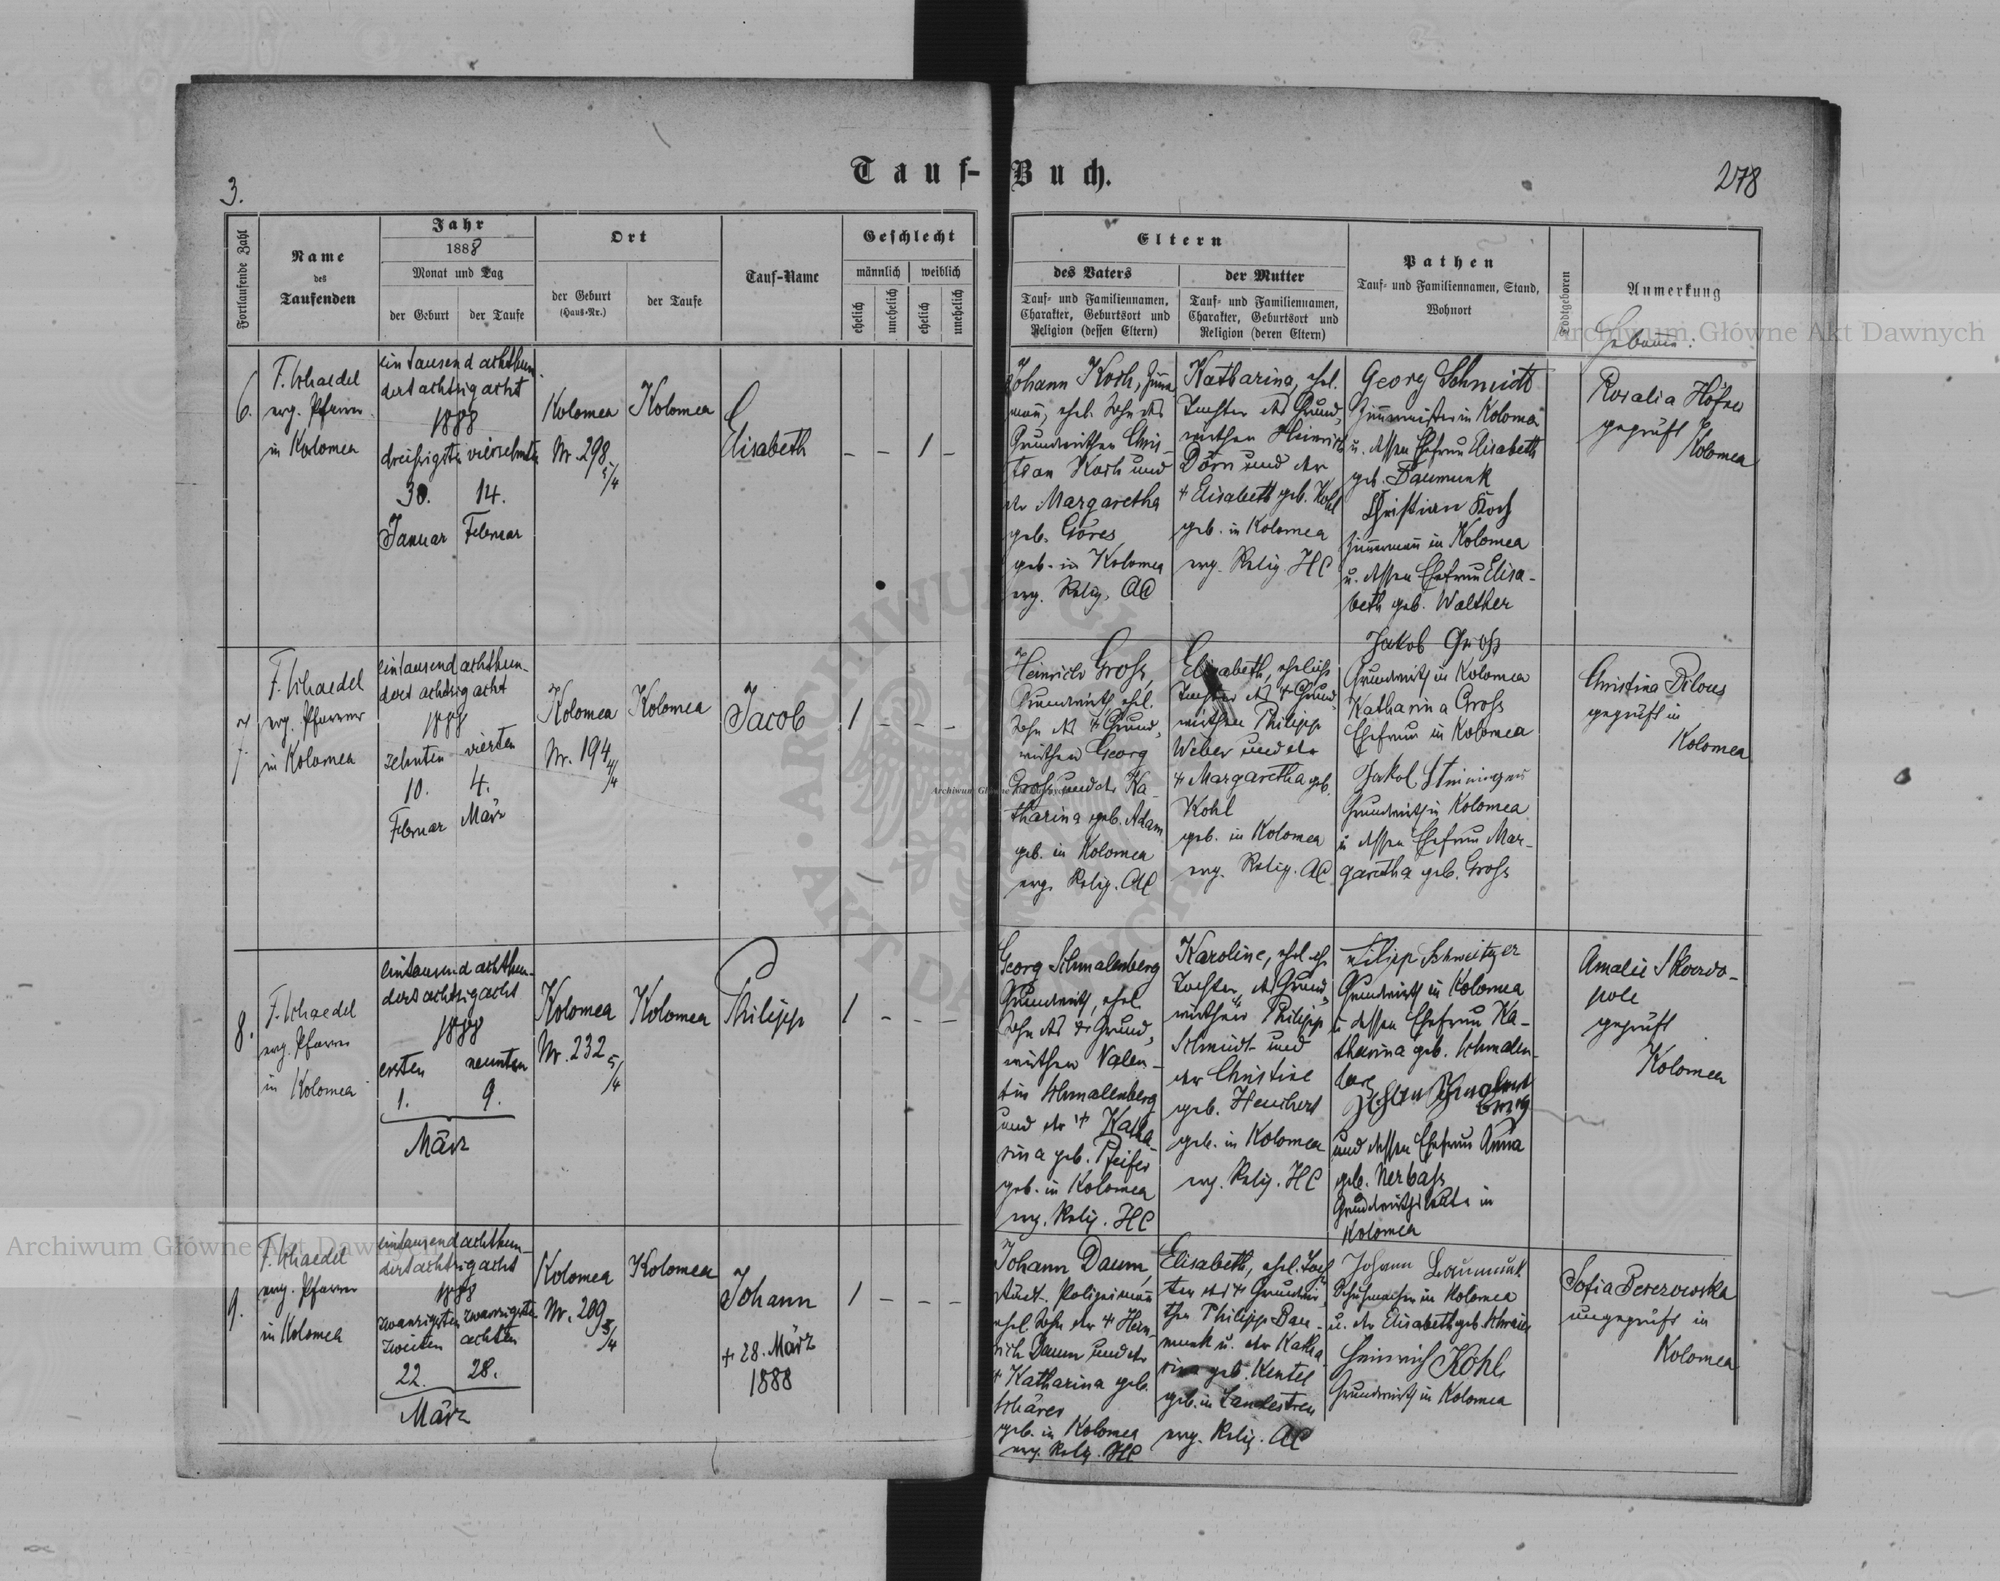 Tauf-Buch.
3.
278
Fortlaufende Zahl
Name
des
Taufenden
Jahr
1888
Monat und Tag
der Geburt
der Taufe
Ort
der Geburt
(Haus-Nr.)
der Taufe
Tauf-Name
Geschlecht
männlich
weiblich
ehelich
unehelich
ehelich
unehelich
Eltern
des Vaters
Tauf- und Familiennamen,
Charakter, Geburtsort und
Religion (dessen Eltern)
der Mutter
Tauf- und Familiennamen,
Charakter, Geburtsort und
Religion (deren Eltern)
Pathen
Tauf- und Familiennamen, Stand,
Wohnort
Todtgeboren
Anmerkung
Hebamme:
6.
F. Schaedel
evg. Pfarrer
in Kolomea
ein tausend achthun-
dert achtzig acht
1888
dreißigsten
30.
Januar
vierzehnten
14.
Februar
Kolomea
Nr. 298
5/4
Kolomea
Elisabeth
- - 1 -
Johann Koch, Zimmer-
mann, ehel. Sohn des
Grundwirthen Chris-
tian Koch und
der Margaretha
geb. Göres
geb. in Kolomea
evg. Relig. AC
Katharina, ehel.
Tochter des Grund-
wirthen Heinrich
Dörn und der
+ Elisabeth geb. Kohl
geb. in Kolomea
evg. Relig. HC
Georg Schmidt
Zimmermeister in Kolomea
u. dessen Ehefrau Elisabeth
geb. Baumunk
Christian Koch
Zimmermann in Kolomea
u. dessen Ehefrau Elisa-
beth geb. Walther
Rosalia Höfner
geprüft
Kolomea
7.
F. Schaedel
evg. Pfarrer
in Kolomea
eintausend achthun-
dert achtzig acht
1888
zehnten
10.
Februar
vierten
4.
März
Kolomea
Nr. 194
4/4
Kolomea
Jacob
1 - - -
Heinrich Groß,
Grundwirth, ehel.
Sohn des + Grund-
wirthen Georg
Groß und der Ka-
tharina geb. Adam
geb. in Kolomea
evg. Relig. AC
Elisabeth, eheliche
Tochter des + Grund-
wirthen Philipp
Weber und der
+ Margaretha geb.
Kohl
geb. in Kolomea
evg. Relig. AC
Jakob Groß
Grundwirth in Kolomea
Katharina Groß
Ehefrau in Kolomea
Jakob Steininger
Grundwirth in Kolomea
u. dessen Ehefrau Mar-
garetha geb. Groß
Christina Bilous
geprüft in
Kolomea
8.
F. Schaedel
evg. Pfarrer
in Kolomea
eintausend achthun-
dert achtzig acht
1888
ersten
1.
neunten
9.
März
Kolomea
Nr. 232
5/4
Kolomea
Philipp
1 - - -
Georg Schmalenberg
Grundwirth, ehel.
Sohn des + Grund-
wirthen Valen-
tin Schmalenberg
und der + Katha-
rina geb. Pfeifer
geb. in Kolomea
evg. Relig. HC
Karoline, ehel.
Tochter des Grund-
wirthen Philipp
Schmidt und
der Christine
geb. Heuchert
geb. in Kolomea
evg. Relig. HC
Filipp Schweitzer
Grundwirth in Kolomea
u dessen Ehefrau Ka-
tharina geb. Schmalen-
berg
und dessen Ehefrau Anna
geb. Nerbaß
Grundwirthsleute in
Kolomea
Amalie Skordo-
pole
geprüft
Kolomea
9.
F. Schaedel
evg. Pfarrer
in Kolomea
eintausend achthun-
dert achtzig acht
1888
zwanzigsten
zweiten
22.
zwanzigsten
achten
28.
März
Kolomea
Nr. 209
5/4
Kolomea
Johann
+ 28. März
1888
1 - - -
Johann Daum,
städt. Polizeimann
ehel. Sohn der + Hein-
rich Daum und der
+ Katharina geb.
Schärer
geb. in Kolomea
evg. Relig. HC
Elisabeth, ehel. Toch-
ter des + Grundwir-
then Philipp Bau-
munk u. der Katha-
rina geb. Kentel
geb. in Landestreu
evg. Relig. AC
Johann Baumunk
Schuhmacher in Kolomea
u. der Elisabeth geb. Schreier
Heinrich Kohl
Grundwirth in Kolomea
Sofia Berezowska
ungeprüft in
Kolomea
Archiwum Główne Akt Dawnych
Archiwum Główne Akt Dawnych
Archiwum Główne Akt Dawnych